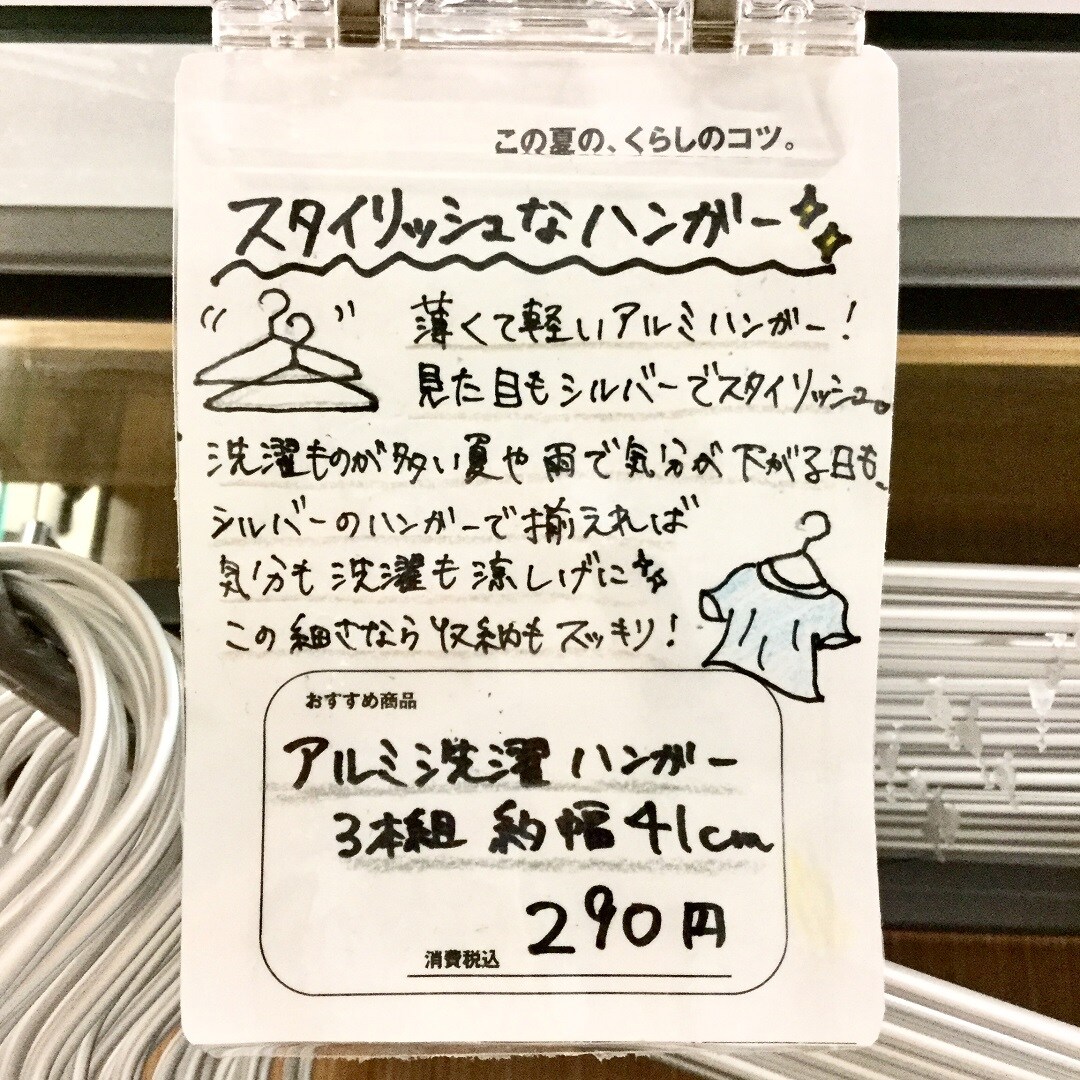 この夏の、くらしのコツ。
スタイリッシュなハンガー
薄くて軽いアルミハンガー!
見た目もシルバーでスタイリッシュ。
洗濯ものが多い夏や雨で気分が下がる日も、
シルバーのハンガーで揃えれば
気分も洗濯も涼しげに
この細さなら収納もスッキリ!
おすすめ商品
アルミ洗濯ハンガー
3本組 約幅41cm
消費税込 290円